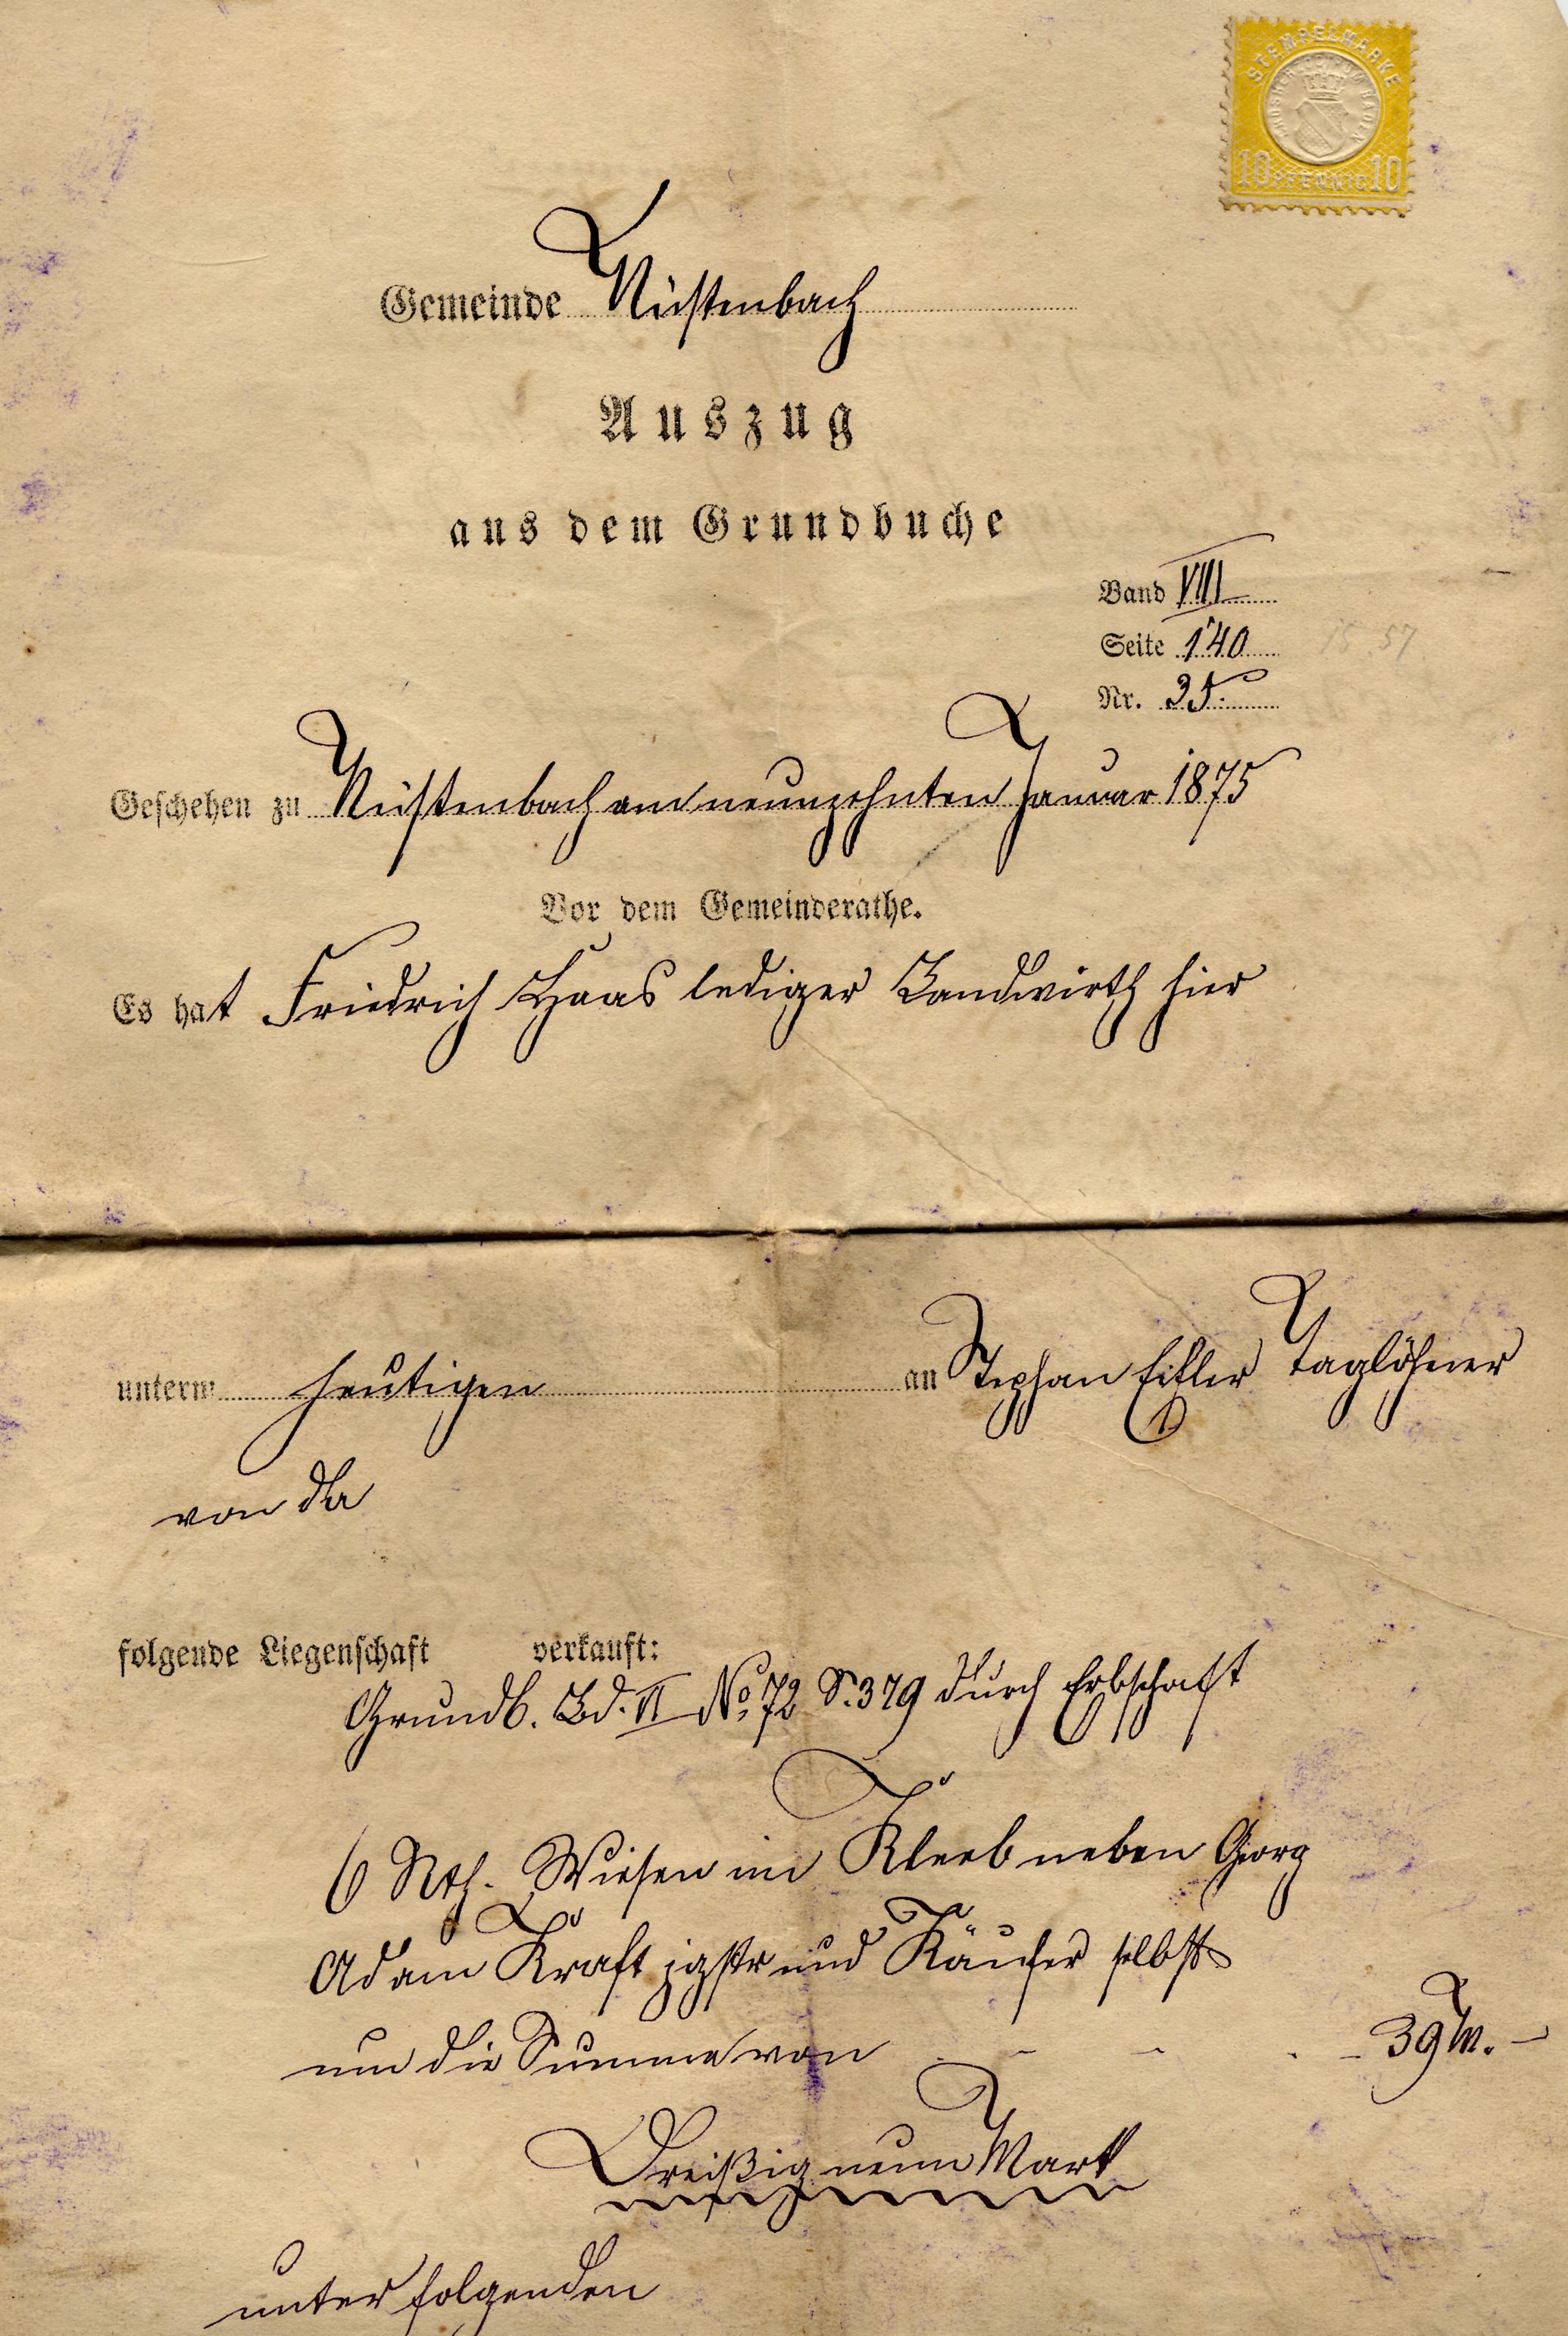 STEMPELMARKE
GROSHERZOGTUM BADEN
10 PFENNIG 10
Gemeinde Nüstenbach
Auszug
aus dem Grundbuche
Band VIII
Seite 140
Nr. 35.
15.57
Geschehen zu Nüstenbach am neunzehnten Januar 1875
Vor dem Gemeinderathe.
Es hat Friedrich Haas lediger Landwirth hier
unterm heutigen an Stephan Eisler Taglöhner
von da
folgende Liegenschaft verkauft:
Grundb. Bd. VI No. 72 S. 379 durch Erbschaft
6 Rth. Wiesen im Kleeb neben Georg
Adam Kraft jgstr und Käufer selbst
um die Summe von 39 M. —
Dreißig neun Mark
unter folgenden